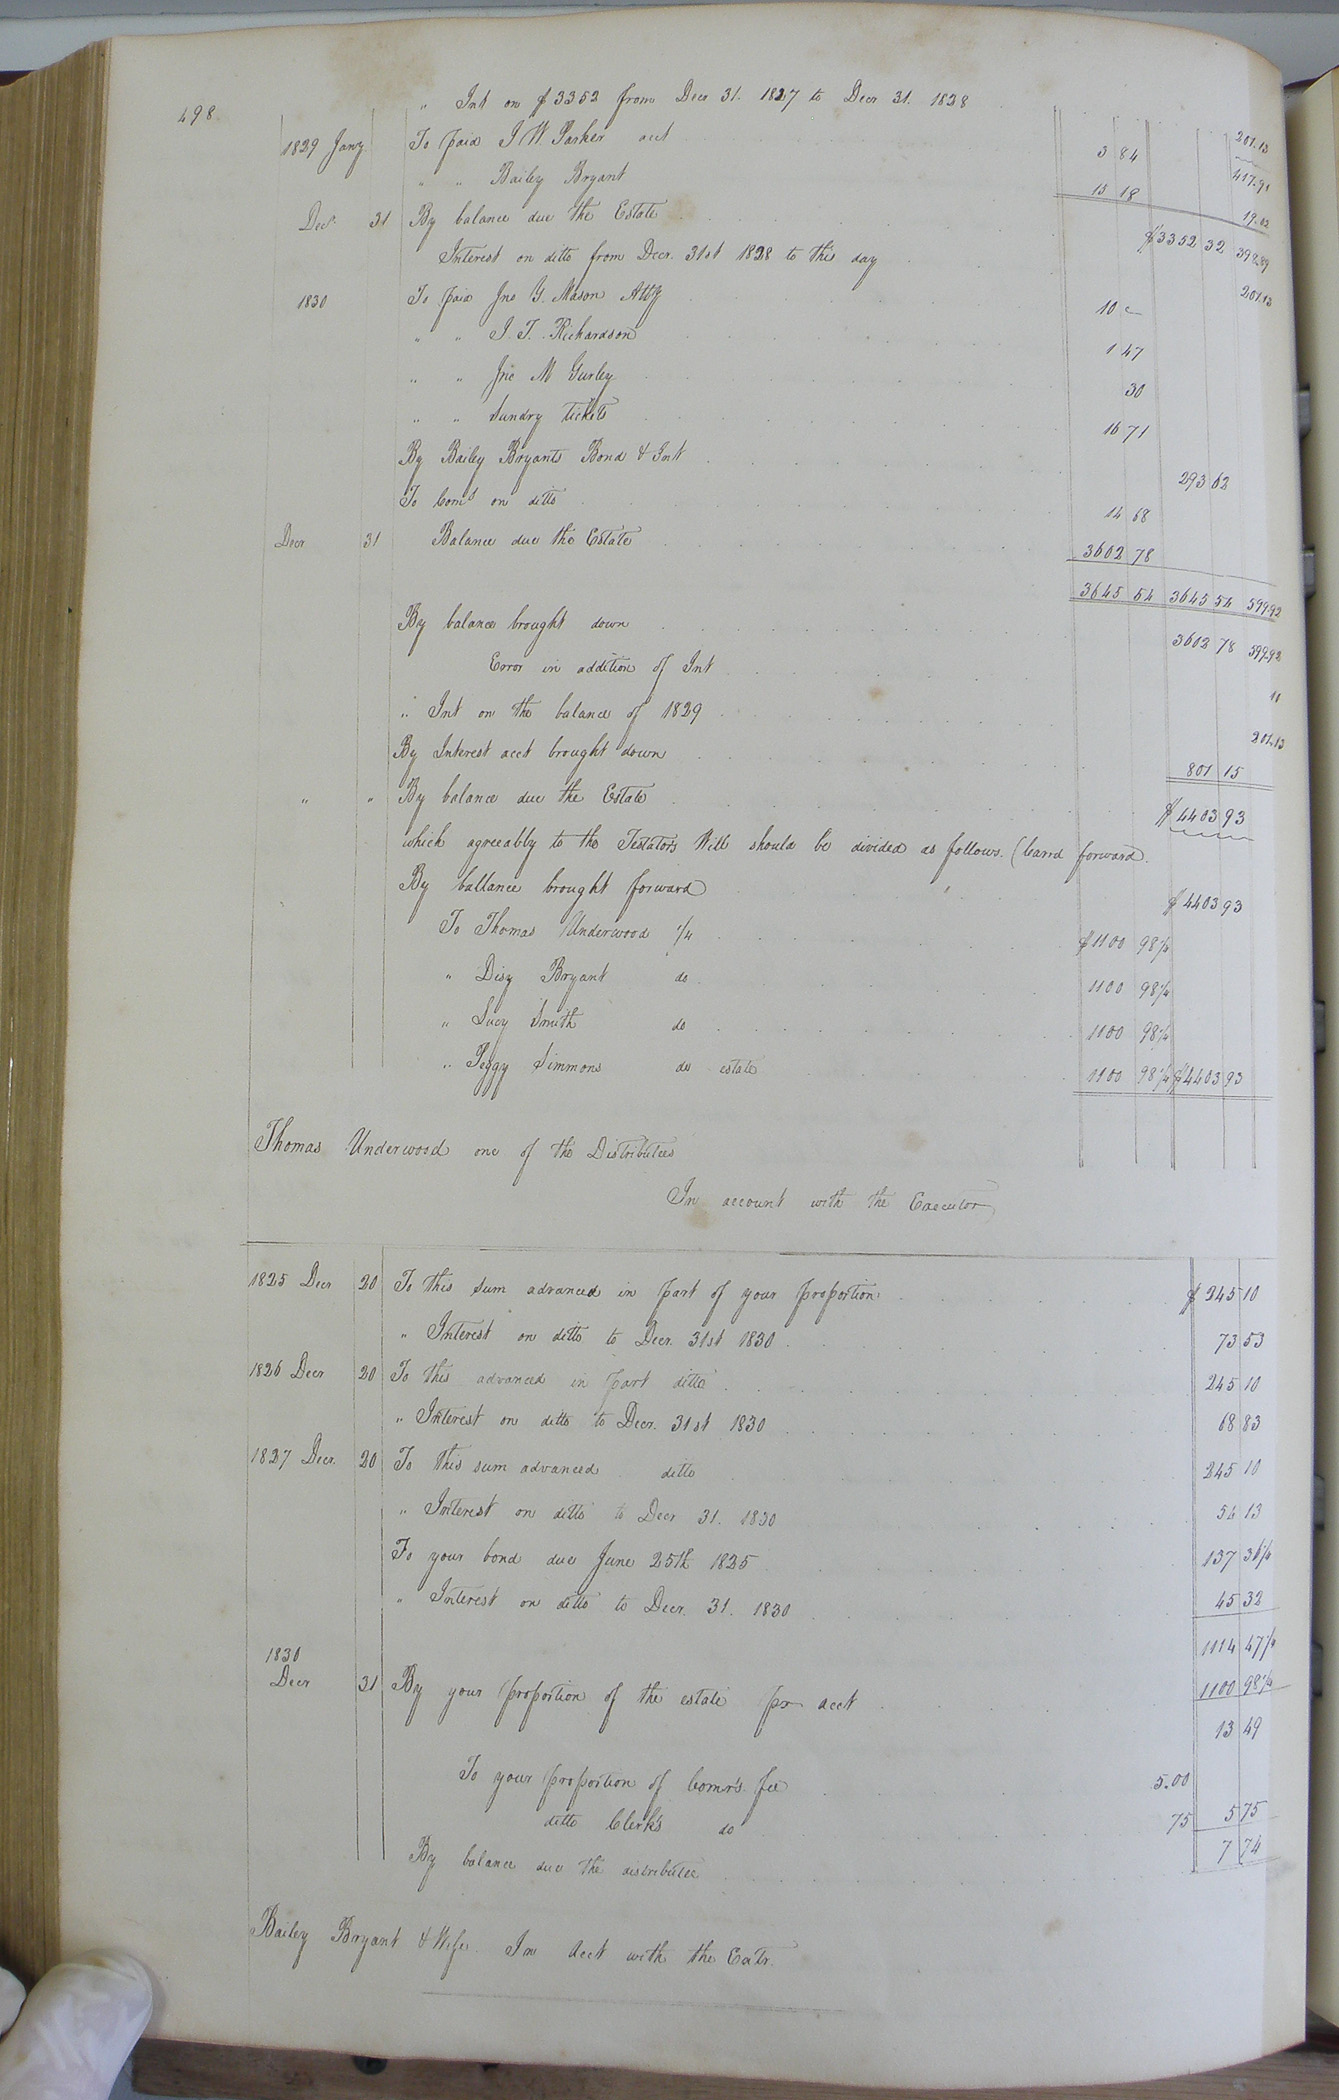 498
" Int on $3352 from Decr 31. 1827 to Decr 31. 1828 201.13
1829 Jany To paid J W. Parker acct 3 84 417.91
" " Bailey Bryant 15 18 19.02
Decr. 31 By balance due the Estate $3352 32 398.89
Interest on ditto from Decr. 31st 1828 to this day 201.13
1830 To paid Jno Y. Mason Atty 10 "
" " J. T. Richardson 1 47
" " Jno M Gurley 30
" " Sundry tickets 16 71
By Bailey Bryants Bond & Int 293 62
To Coms on ditto 14 68
Decr 31 Balance due the Estate 3602 78
3645 54 3645 54 599.92
By balance brought down 3602 78 599.92
Error in addition of Int 10
" Int on the balance of 1829 201.13
By Interest acct brought down 801 15
" " By balance due the Estate $4403 93
which agreeably to the Testators Will should be divided as follows. (Carrd forward.
By ballance brought forward $4403 93
To Thomas Underwood 1/4 $1100 98 1/4
" Disy Bryant do 1100 98 1/4
" Lucy Smith do 1100 98 1/4
" Peggy Simmons do estate 1100 98 1/4 $4403 93
Thomas Underwood one of the Distributees
In account with the Executor
1825 Decr 20 To this sum advanced in part of your proportion $ 245 10
" Interest on ditto to Decr. 31st 1830 73 53
1826 Decr 20 To this advanced in part ditto 245 10
" Interest on ditto to Decr. 31st 1830 68 83
1827 Decr. 20 To this sum advanced ditto 245 10
" Interest on ditto to Decr 31. 1830 54 13
To your bond due June 25th 1825 137 36 1/4
" Interest on ditto to Decr. 31. 1830 45 32
1114 47 1/4
1830
Decr 31 By your proportion of the estate pr acct 1100 98 1/4
13 49
To your proportion of Comrs. fee 5.00
ditto Clerks do 75 5 75
By balance due the distributee 7 74
Bailey Bryant & Wife. In Acct with the Exetr.